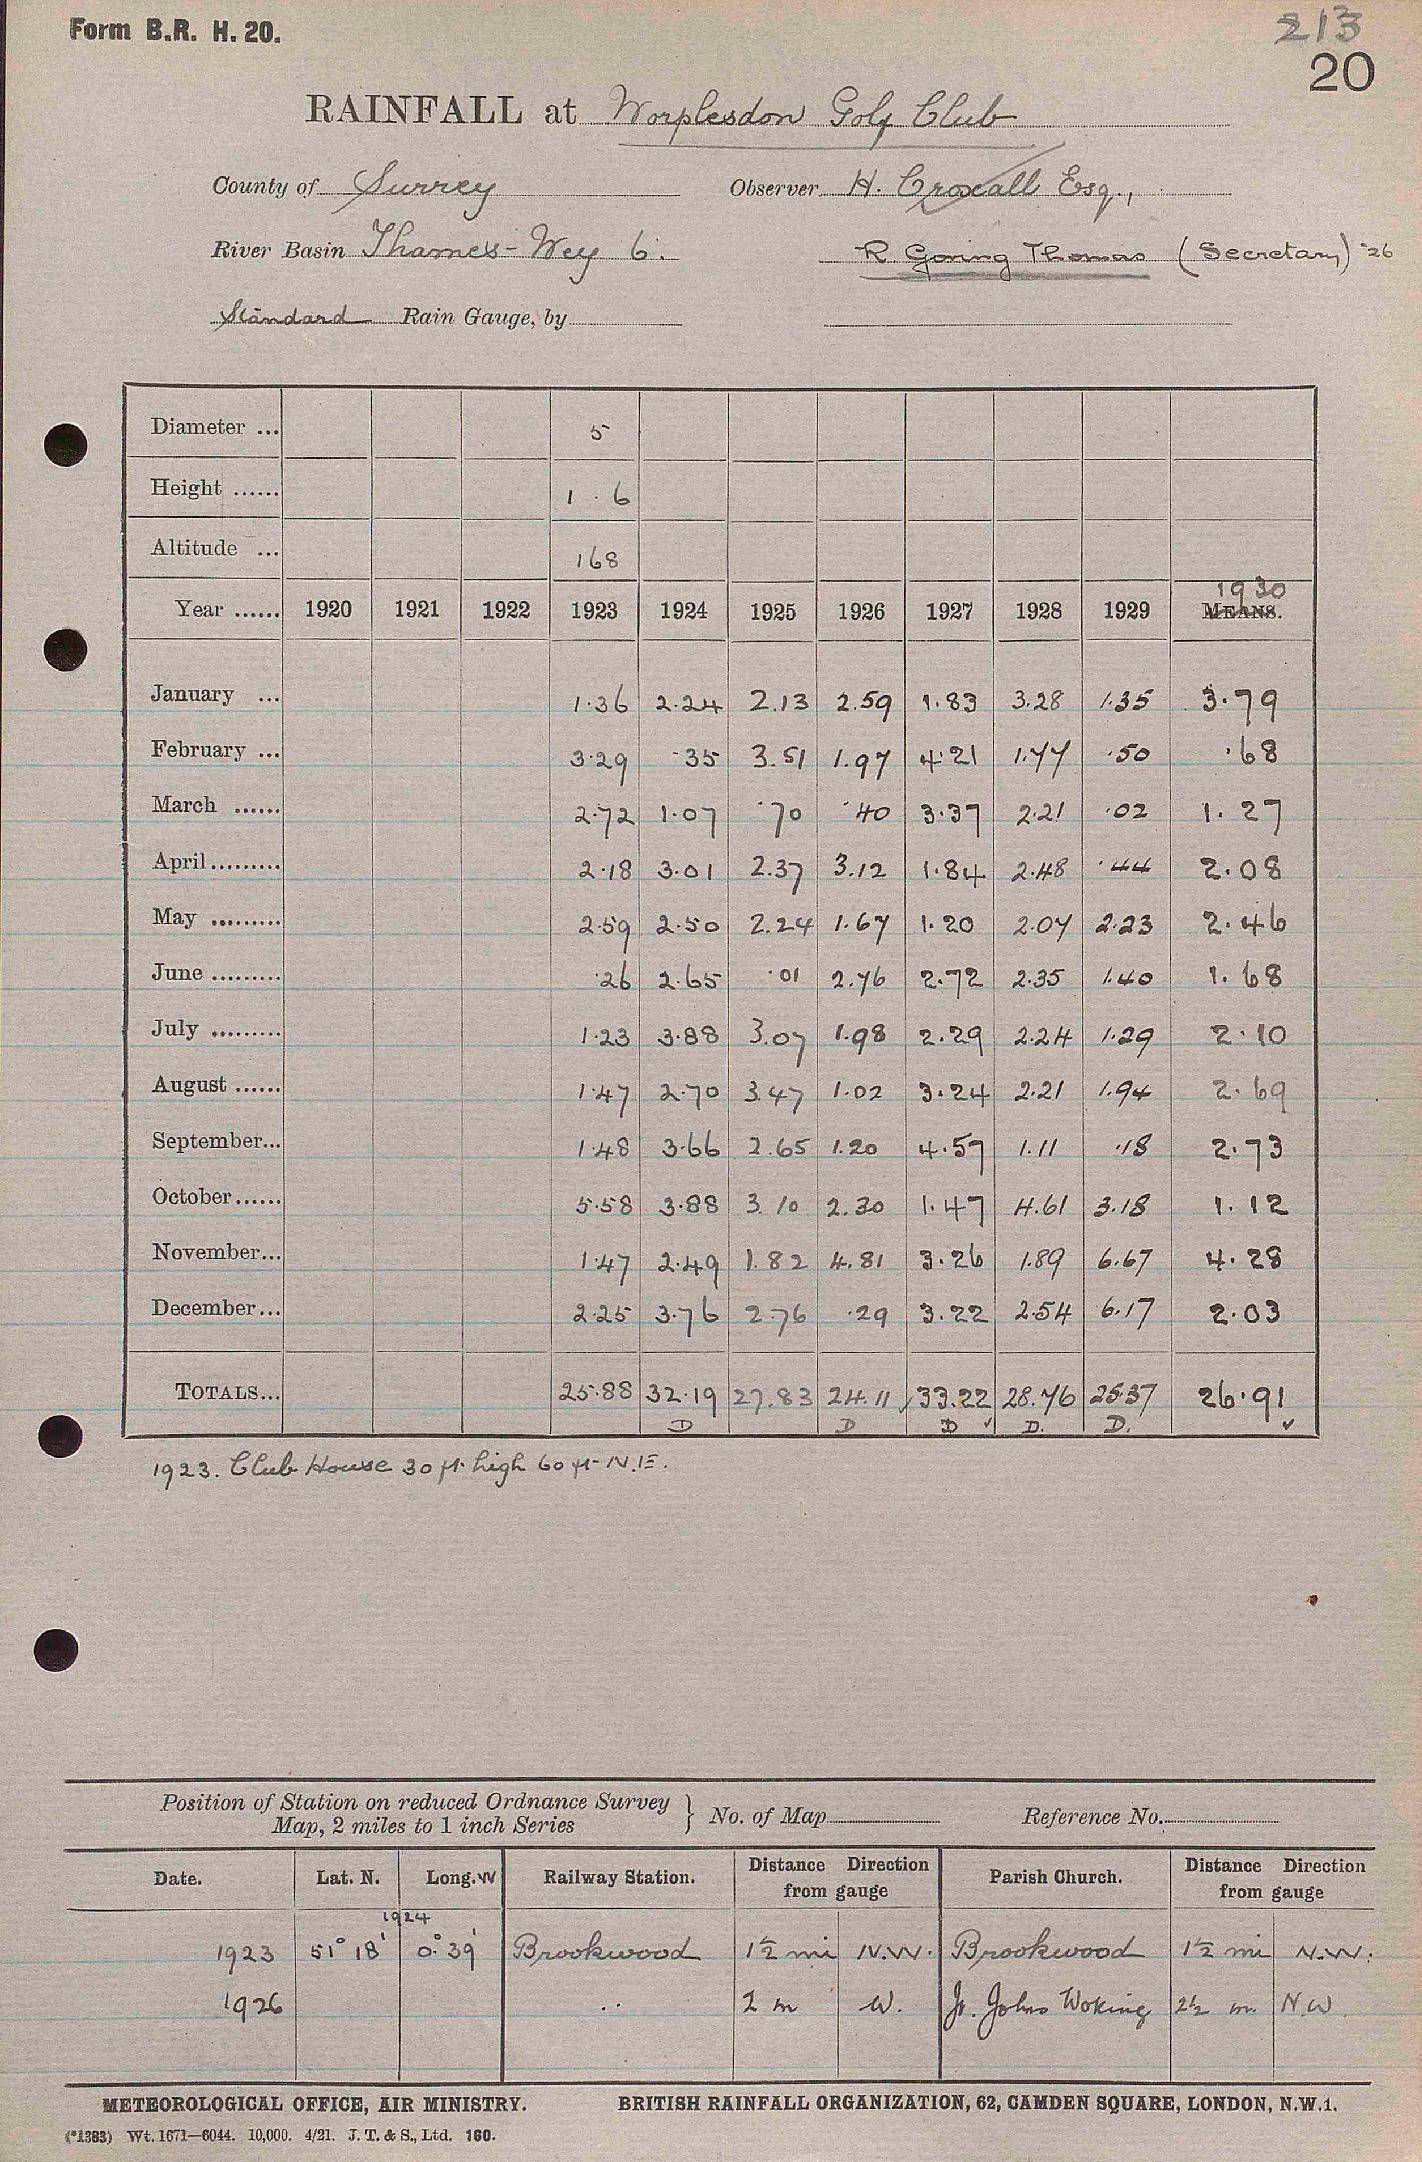 Form B.R. H. 20.
213
20
RAINFALL at Worplesdon Golf Club
County of Surrey Observer H. Croxall Esq.,
River Basin Thames - Wey 6. R Goring Thomas (Secretary) '26
Standard Rain Gauge, by
Diameter ... 5
Height ...... 1 . 6
Altitude ... 168
1930
Year ...... 1920 1921 1922 1923 1924 1925 1926 1927 1928 1929 MEANS.
January ... 1.36 2.24 2.13 2.59 1.83 3.28 1.35 3.79
February ... 3.29 .35 3.51 1.97 4.21 1.77 .50 .68
March ...... 2.72 1.07 .70 .40 3.37 2.21 .02 1.27
April......... 2.18 3.01 2.37 3.12 1.84 2.48 .44 2.08
May ......... 2.59 2.50 2.24 1.67 1.20 2.07 2.23 2.46
June ......... .26 2.65 .01 2.76 2.72 2.35 1.40 1.68
July ......... 1.23 3.88 3.07 1.98 2.29 2.24 1.29 2.10
August ...... 1.47 2.70 3.47 1.02 3.24 2.21 1.94 2.69
September... 1.48 3.66 2.65 1.20 4.57 1.11 .18 2.73
October...... 5.58 3.88 3.10 2.30 1.47 4.61 3.18 1.12
November... 1.47 2.49 1.82 4.81 3.26 1.89 6.67 4.28
December... 2.25 3.76 2.76 .29 3.22 2.54 6.17 2.03
TOTALS... 25.88 32.19 27.83 24.11 33.22 28.76 25.37 26.91
D D D ✓ D. D. ✓
1923. Club House 30 ft. high 60 ft. N.E.
Position of Station on reduced Ordnance Survey } No. of Map Reference No.
Map, 2 miles to 1 inch Series
Date. Lat. N. Long. W Railway Station. Distance Direction Parish Church. Distance Direction
from gauge from gauge
1924
1923 51° 18' 0° 39' Brookwood 1½ mi N.W. Brookwood 1½ mi N.W.
1926 .. 2 m W. St. Johns Woking 2½ m. NW
METEOROLOGICAL OFFICE, AIR MINISTRY. BRITISH RAINFALL ORGANIZATION, 62, CAMDEN SQUARE, LONDON, N.W.1.
(*1383) Wt. 1671—6044. 10,000. 4/21. J. T. & S., Ltd. 160.